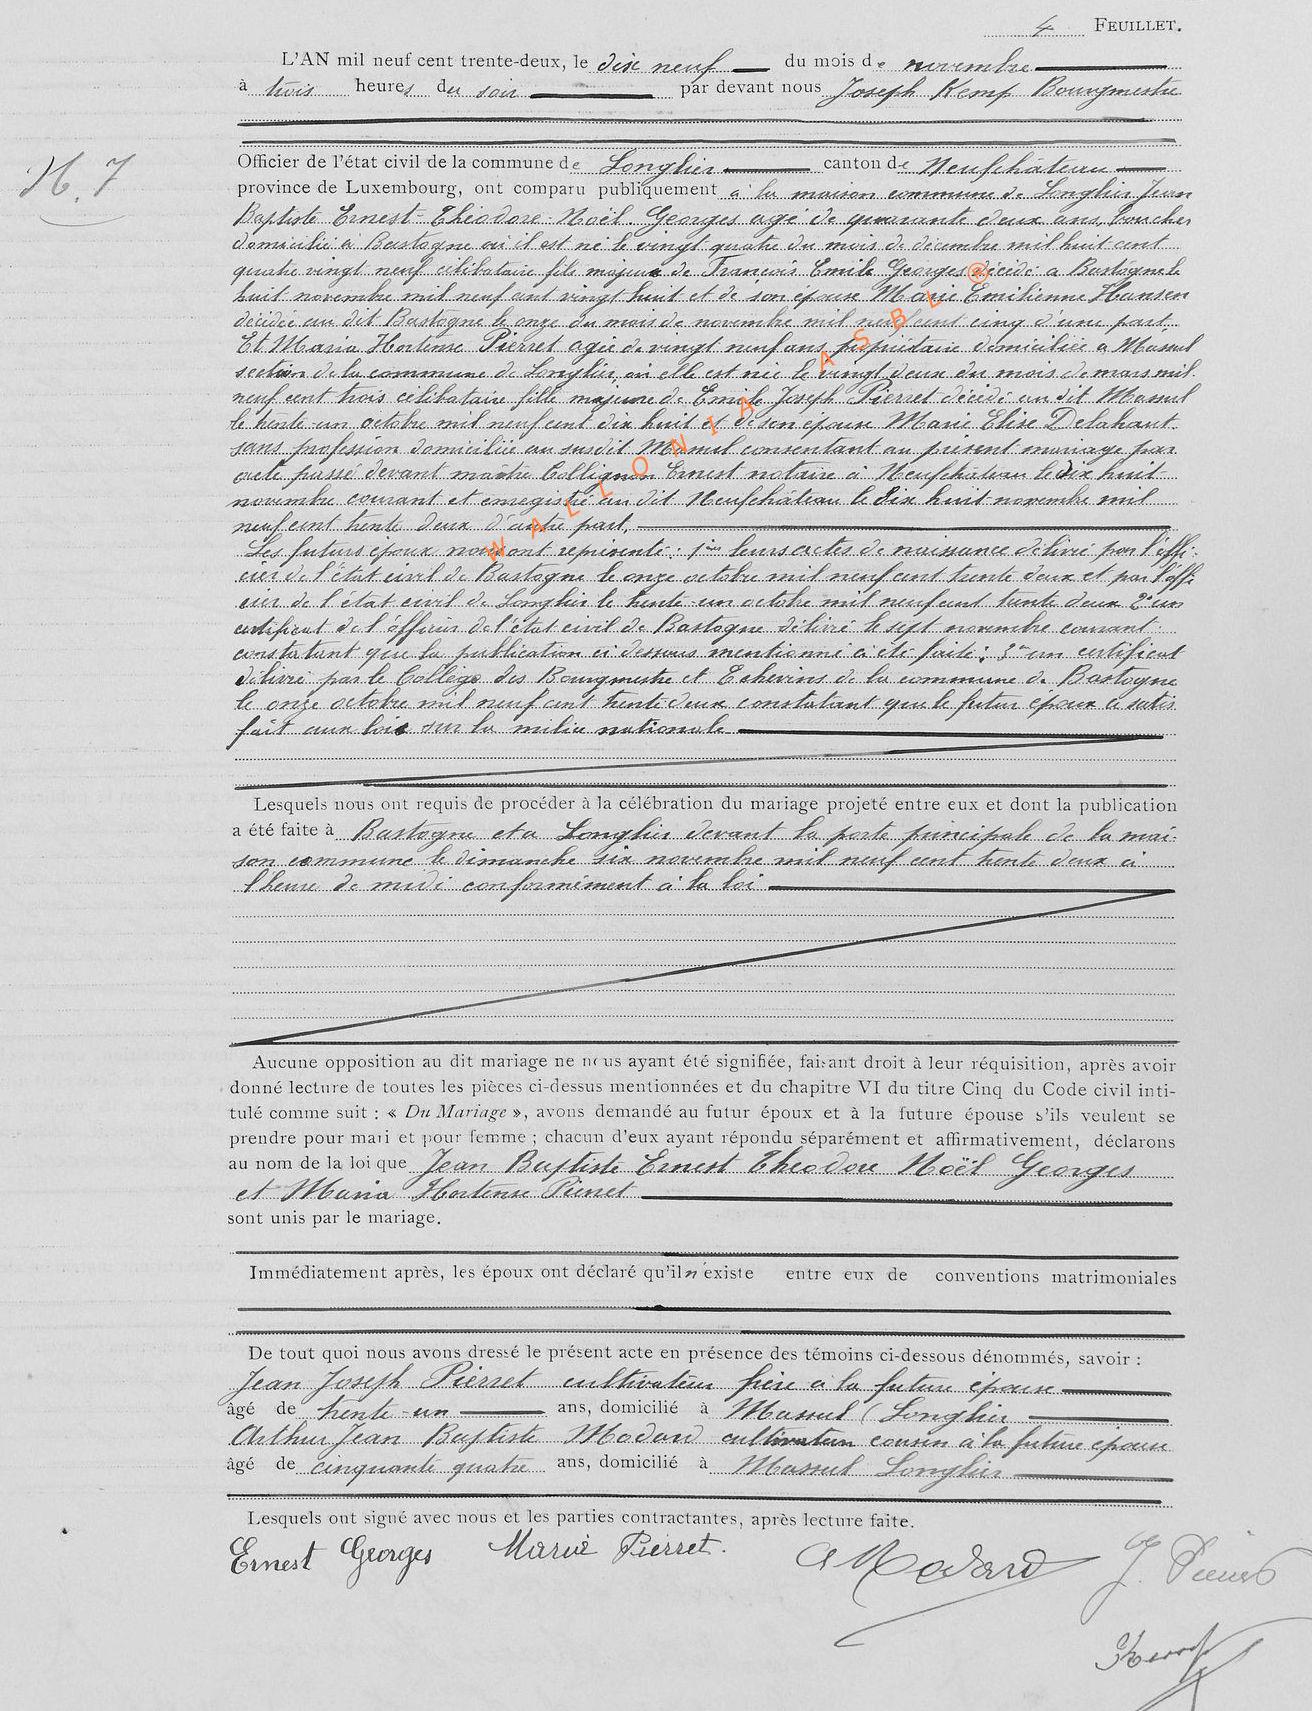 4 FEUILLET.
L'AN mil neuf cent trente-deux, le dix neuf du mois de novembre
à trois heures du soir par devant nous Joseph Kemp Bourgmestre
N. 7
Officier de l'état civil de la commune de Longlier canton de Neufchâteau
province de Luxembourg, ont comparu publiquement à la maison commune de Longlier Jean
Baptiste Ernest Théodore Noël Georges agé de quarante deux ans, boucher
domicilié a Bastogne où il est né le vingt quatre du mois de décembre mil huit cent
quatre vingt neuf célibataire fils majeur de François Emile Georges décédé a Bastogne le
huit novembre mil neuf cent vingt huit et de son épouse Marie Emilienne Hansen
décédée au dit Bastogne le onze du mois de novembre mil neuf cent cinq d'une part
Et Maria Hortense Pierret agée de vingt neuf ans, propriétaire domiciliée a Massul
section de la commune de Longlier, où elle est née le vingt deux du mois de mars mil
neuf cent trois célibataire fille majeure de Emile Joseph Pierret décédé au dit Massul
le trente un octobre mil neuf cent dix huit et de son épouse Marie Elise Delahaut
sans profession domiciliée au susdit Massul consentant au présent mariage par
acte passé devant maître Collignon Ernest notaire à Neufchâteau le dix huit
novembre courant et enregistré au dit Neufchâteau le dix huit novembre mil
neuf cent trente deux d'autre part.
Les futurs époux nous ont représenté : 1° leurs actes de naissance délivré par l'offi-
cier de l'état civil de Bastogne le onze octobre mil neuf cent trente deux et par l'offi-
cier de l'état civil de Longlier le trente-un octobre mil neuf cent trente deux 2° un
certificat de l'officier de l'état civil de Bastogne délivré le sept novembre courant
constatant que la publication ci dessous mentionné a été faite; 3° un certificat
délivré par le Collège des Bourgmestre et Echevins de la commune de Bastogne
le onze octobre mil neuf cent trente deux constatant que le futur époux a satis
fait aux lois sur la milice nationale
Lesquels nous ont requis de procéder à la célébration du mariage projeté entre eux et dont la publication
a été faite à Bastogne et a Longlier devant la porte principale de la mai-
son commune le dimanche six novembre mil neuf cent trente deux à
l'heure de midi conformément à la loi
Aucune opposition au dit mariage ne nous ayant été signifiée, faisant droit à leur réquisition, après avoir
donné lecture de toutes les pièces ci-dessus mentionnées et du chapitre VI du titre Cinq du Code civil inti-
tulé comme suit : « Du Mariage », avons demandé au futur époux et à la future épouse s'ils veulent se
prendre pour mari et pour femme ; chacun d'eux ayant répondu séparément et affirmativement, déclarons
au nom de la loi que Jean Baptiste Ernest Théodore Noël Georges
et Maria Hortense Pierret
sont unis par le mariage.
Immédiatement après, les époux ont déclaré qu'il n'existe entre eux de conventions matrimoniales
De tout quoi nous avons dressé le présent acte en présence des témoins ci-dessous dénommés, savoir :
Jean Joseph Pierret cultivateur frère à la future épouse
âgé de trente-un ans, domicilié à Massul (Longlier
Arthur Jean Baptiste Modard cultivateur cousin à la future épouse
âgé de cinquante quatre ans, domicilié à Massul Longlier
Lesquels ont signé avec nous et les parties contractantes, après lecture faite.
Ernest Georges Maria Pierret. A Modard J. Pierret
Kemp
WALLONIA ASBL ®